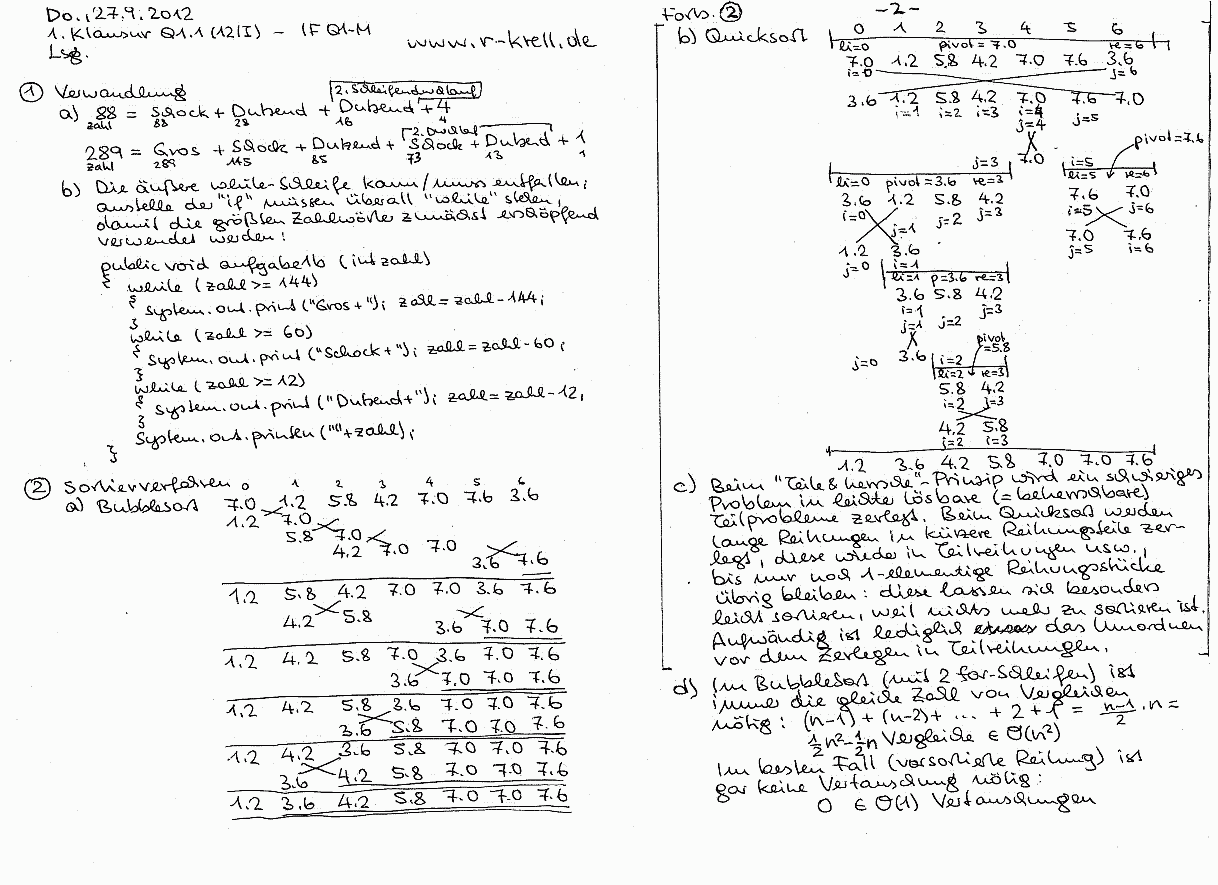 Do., 27.9.2012
1. Klausur Q1.1 (12/I) - IF Q1-M
Lsg.
www.r-krell.de
① Verwandlung
2. Schleifendurchlauf
a) 88 = Schock + Dutzend + Dutzend + 4
zahl 88 28 16 4
2. Durchlauf
289 = Gros + Schock + Dutzend + Schock + Dutzend + 1
zahl 289 145 85 73 13 1
b) Die äußere while-Schleife kann/muss entfallen;
anstelle der "if" müssen überall "while" stehen,
damit die größten Zahlwörter zunächst erschöpfend
verwendet werden:
public void aufgabe1b (int zahl)
{ while (zahl >= 144)
{ System.out.print ("Gros+"); zahl = zahl-144;
}
while (zahl >= 60)
{ System.out.print ("Schock+"); zahl = zahl-60;
}
while (zahl >= 12)
{ System.out.print ("Dutzend+"); zahl = zahl-12;
}
System.out.println (""+zahl);
}
② Sortierverfahren 0 1 2 3 4 5 6
a) Bubblesort 7.0 1.2 5.8 4.2 7.0 7.6 3.6
1.2 7.0
5.8 7.0
4.2 7.0 7.0
3.6 7.6
1.2 5.8 4.2 7.0 7.0 3.6 7.6
4.2 5.8
3.6 7.0 7.6
1.2 4.2 5.8 7.0 3.6 7.0 7.6
3.6 7.0 7.0 7.6
1.2 4.2 5.8 3.6 7.0 7.0 7.6
3.6 5.8 7.0 7.0 7.6
1.2 4.2 3.6 5.8 7.0 7.0 7.6
3.6 4.2 5.8 7.0 7.0 7.6
1.2 3.6 4.2 5.8 7.0 7.0 7.6
Forts. ② -2-
b) Quicksort 0 1 2 3 4 5 6
li=0 pivot = 7.0 re=6
7.0 1.2 5.8 4.2 7.0 7.6 3.6
i=0 j=6
3.6 1.2 5.8 4.2 7.0 7.6 7.0
i=1 i=2 i=3 i=4 j=5
j=4
7.0
pivot=7.6
j=3 i=5
li=0 pivot=3.6 re=3 li=5 re=6
3.6 1.2 5.8 4.2 7.6 7.0
i=0 j=1 j=2 j=3 i=5 j=6
1.2 3.6 7.0 7.6
j=0 i=1 j=5 i=6
li=1 p=3.6 re=3
3.6 5.8 4.2
i=1 j=3
j=1 j=2
j=0 3.6 i=2 pivot=5.8
li=2 re=3
5.8 4.2
i=2 j=3
4.2 5.8
j=2 i=3
1.2 3.6 4.2 5.8 7.0 7.0 7.6
c) Beim "Teile & herrsche"-Prinzip wird ein schwieriges
Problem in leichte lösbare (=beherrschbare)
Teilprobleme zerlegt. Beim Quicksort werden
lange Reihungen in kürzere Reihungsteile zer-
legt, diese wieder in Teilreihungen usw.,
bis nur noch 1-elementige Reihungsstücke
übrig bleiben: diese lassen sich besonders
leicht sortieren, weil nichts mehr zu sortieren ist.
Aufwändig ist lediglich das Umordnen
vor dem Zerlegen in Teilreihungen.
d) Im BubbleSort (mit 2 for-Schleifen) ist
immer die gleiche Zahl von Vergleichen
nötig: (n-1) + (n-2) + ... + 2 + 1 = n-1/2 · n =
½n² - ½n Vergleiche ∈ O(n²)
Im besten Fall (vorsortierte Reihung) ist
gar keine Vertauschung nötig:
0 ∈ O(1) Vertauschungen